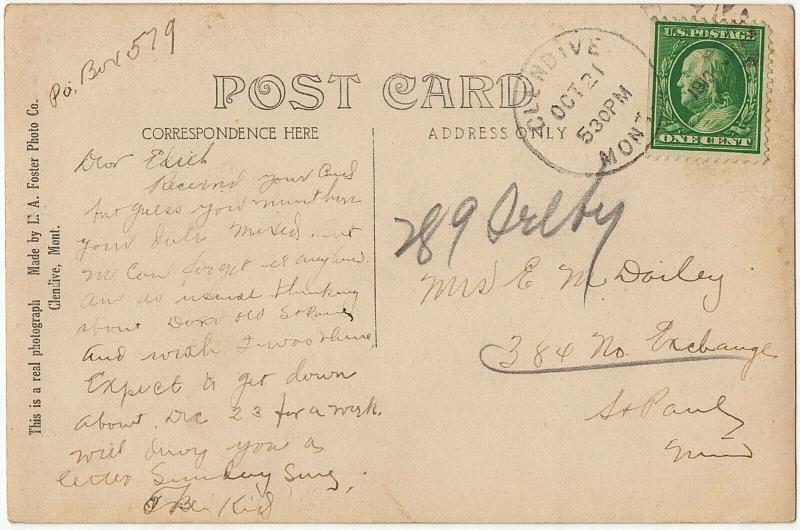 P.O. Box 579
POST CARD
CORRESPONDENCE HERE
ADDRESS ONLY
GLENDIVE
OCT 21
530PM
MONT
U.S. POSTAGE
ONE CENT
This is a real photograph Made by L. A. Foster Photo Co.
Glendive, Mont.
Dear Edith
Received your Card
but guess you must have
your date mixed
We Can forget it anyhow.
Am as usual thinking
about Dear old St Paul
And wish I was there
Expect to get down
about Dec 23 for a week.
will you a
letter Sunday Sure,
The Kid
289 Selby
Mrs E M Dailey
384 No. Exchange
St Paul
Minn